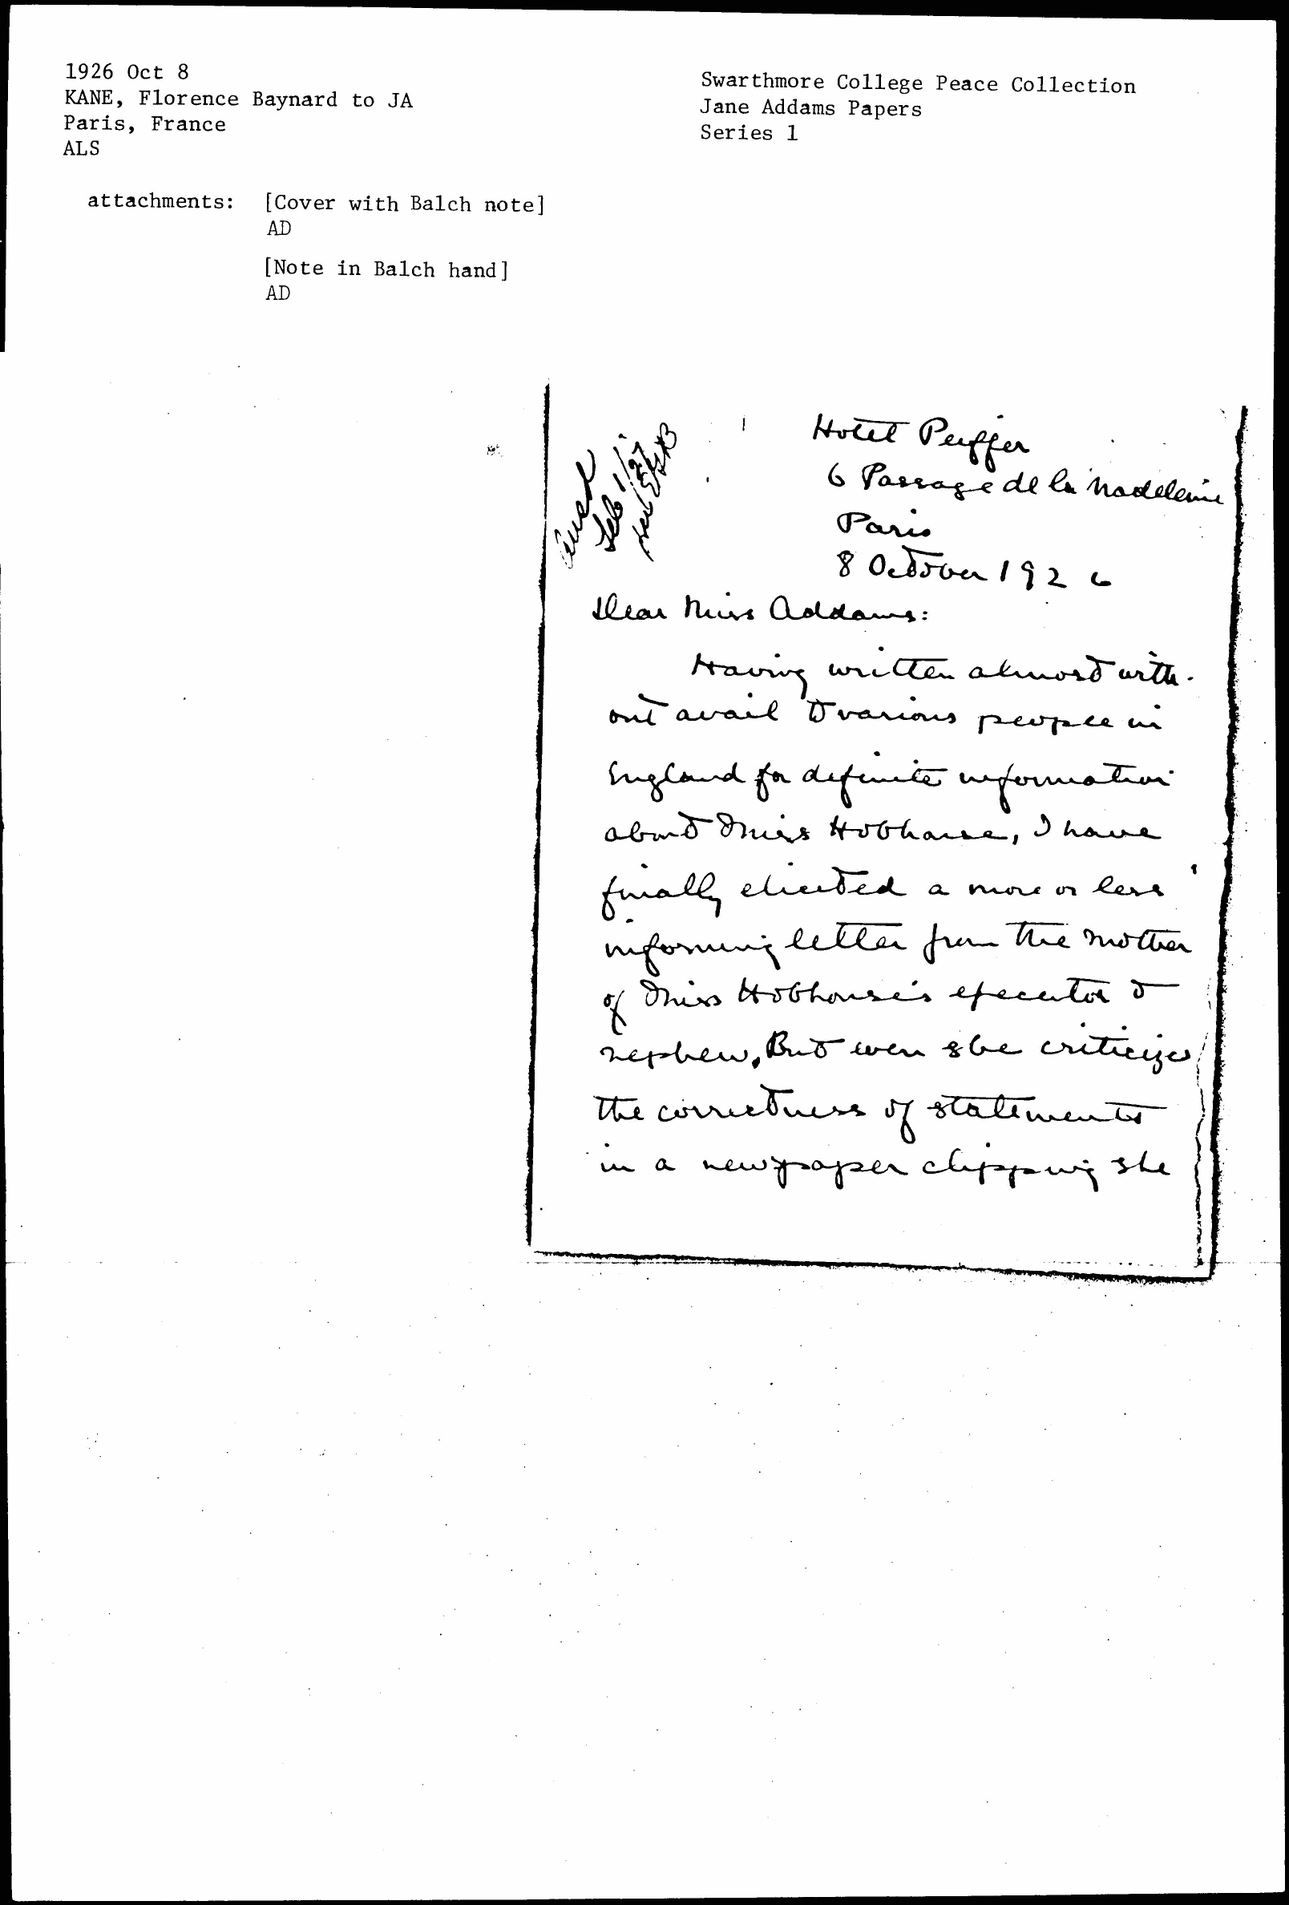 1926 Oct 8
KANE, Florence Baynard to JA
Paris, France
ALS
attachments: [Cover with Balch note]
AD
[Note in Balch hand]
AD
Swarthmore College Peace Collection
Jane Addams Papers
Series 1
Feb 1/27
Hotel Peiffer
6 Passage de la Madeleine
Paris
8 October 1926
Dear Miss Addams:
Having written almost with-
out avail to various people in
England for definite information
about Miss Hobhouse, I have
finally elicited a more or less
informing letter from the mother
of Miss Hobhouse's executor &
nephew. But even she criticizes
the correctness of statements
in a newspaper clipping she